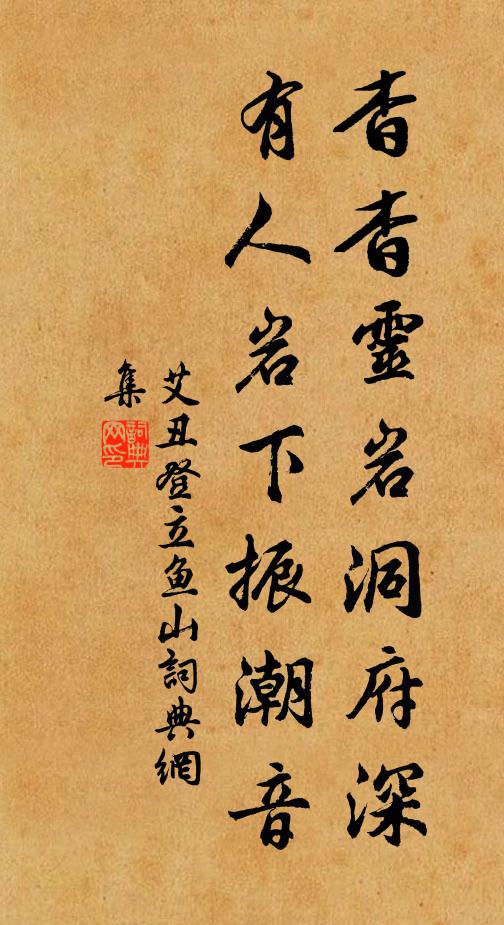 杳杳靈岩洞府深
有人岩下振潮音
艾丑登立鱼山詞典網
集
詞典
网印